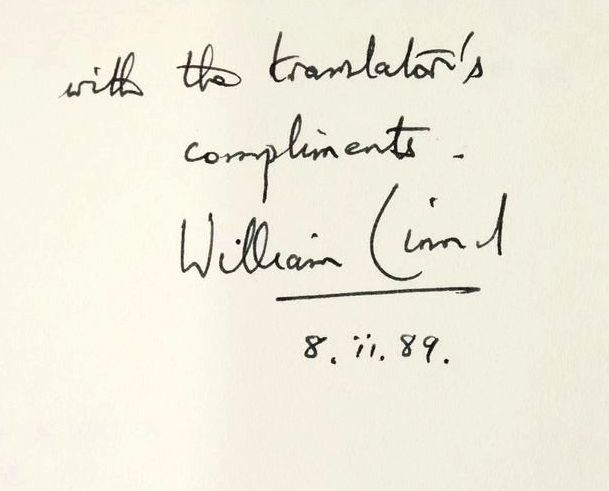 with the translator's
compliments.
William
8. ii. 89.